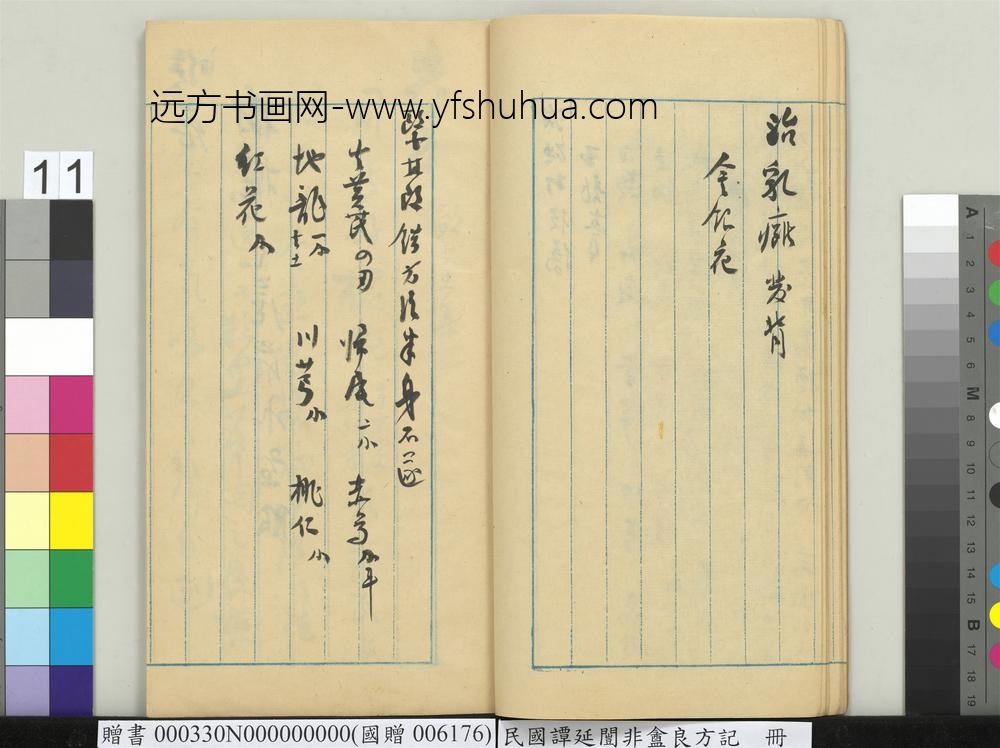 远方书画网-www.yfshuhua.com
治乳癰发背
金银花
方治半身不遂
生黄芪四刄 归尾二小 赤芍
地龍 去土 川芎小 桃仁小
红花
11
贈書 000330N000000000(國贈 006176)
民國譚延闓非盦良方記 冊
A 1 2 3 4 5 6 M 8 9 10 11 12 13 14 15 B 17 18 19